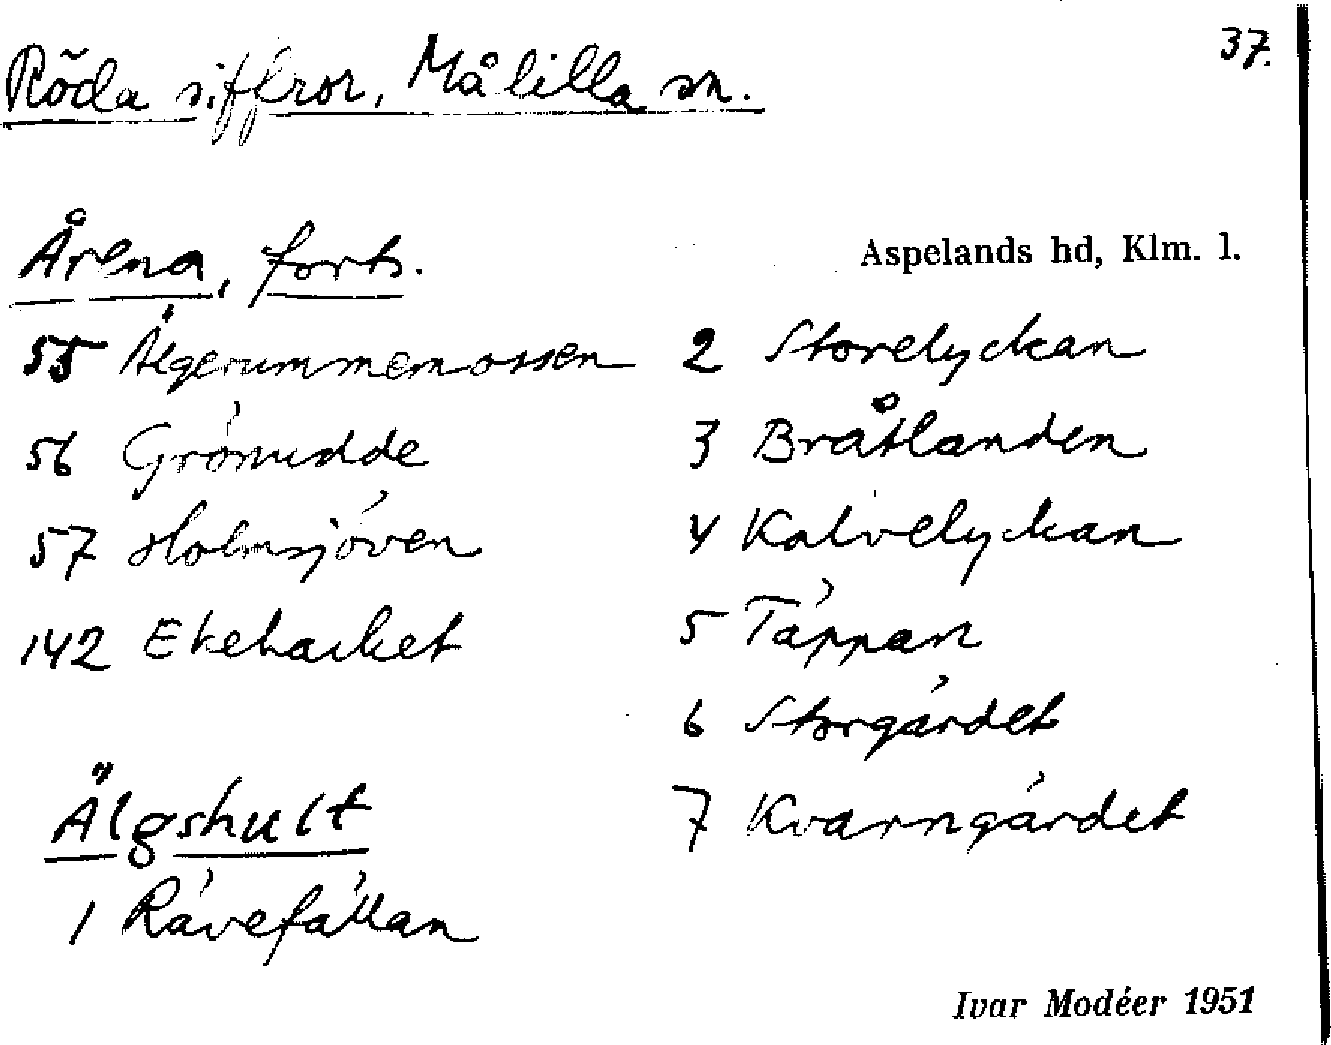 37.
Röda siffror, Målilla sn.
Årena, forts.
Aspelands hd, Klm. l.
55 Älgerummemossen
56 Grönudde
57 Holmsjöven
142 Ekebacket
Älgshult
1 Rävefällan
2 Storelyckan
3 Bråtlanden
4 Kalvelyckan
5 Täppan
6 Storgärdet
7 Kvarngärdet
Ivar Modéer 1951